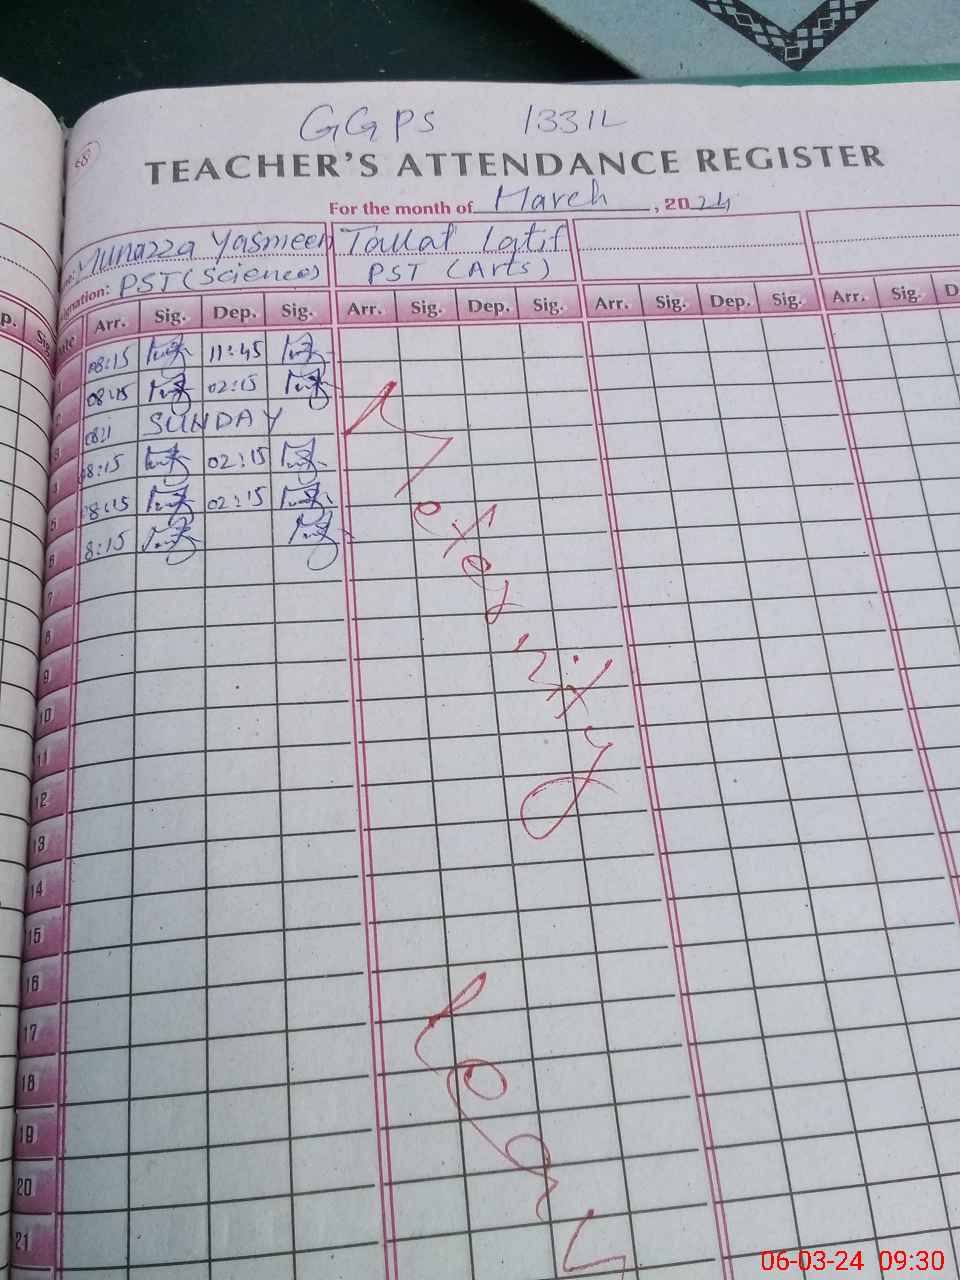 68
GGPS 133IL
TEACHER'S ATTENDANCE REGISTER
For the month of March, 2024
Munazza Yasmeen Tallat Latif
ignation: PST (Science) PST (Arts)
p. Arr. Sig. Dep. Sig. Arr. Sig. Dep. Sig. Arr. Sig. Dep. Sig. Arr. Sig. D
1 08:15 11:45
2 08:15 02:15
3 SUNDAY
4 8:15 02:15
5 8:15 02:15
6 8:15
7
8
9
10
11
12
13
14
15
16
17
18
19
20
21
Mexernity
Leav
06-03-24 09:30